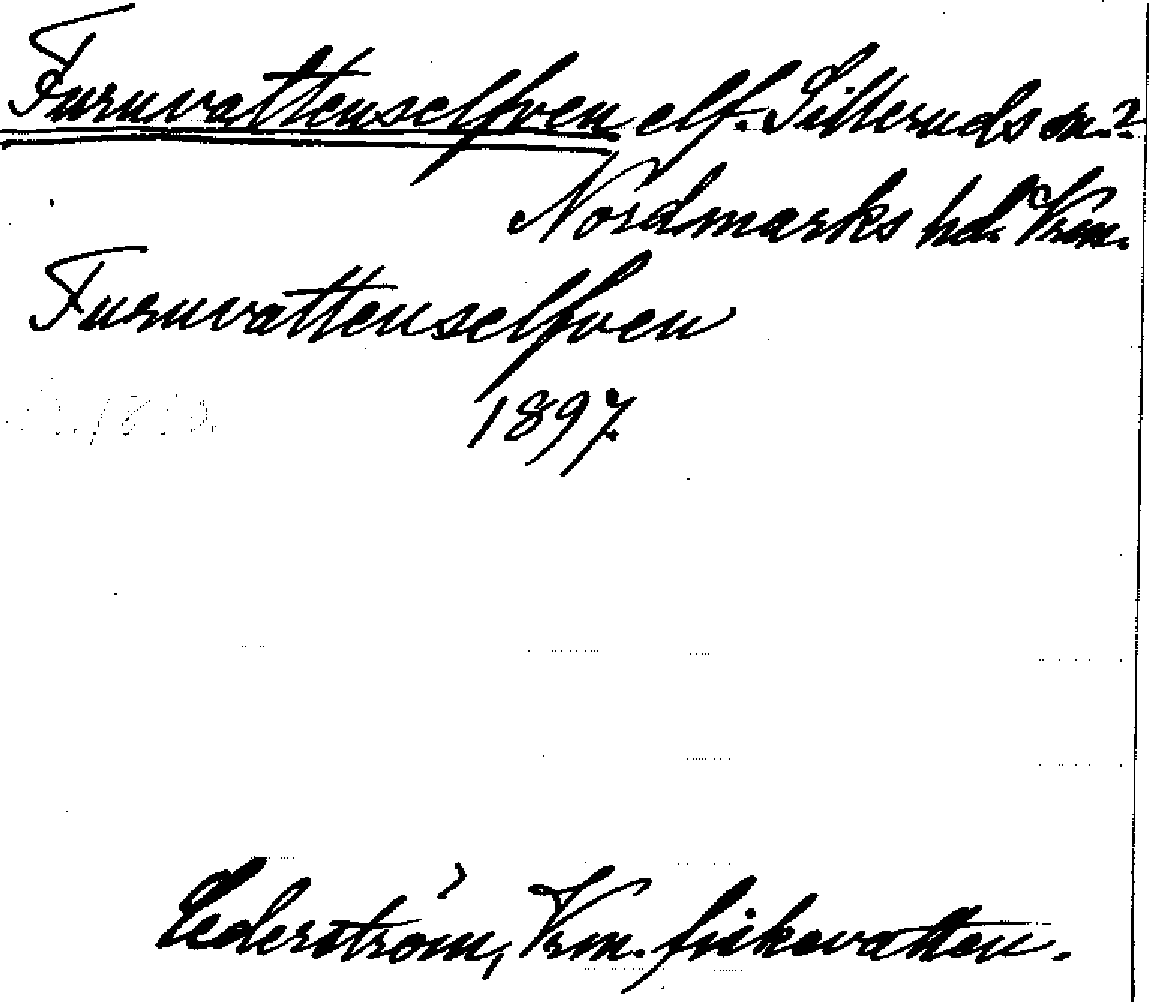 Furuvattenselfven elf. Silleruds sn.?
Nordmarks hd. Vrm.
Furuvattenselfven
1897.
Cederström, Vrm. fiskevatten.